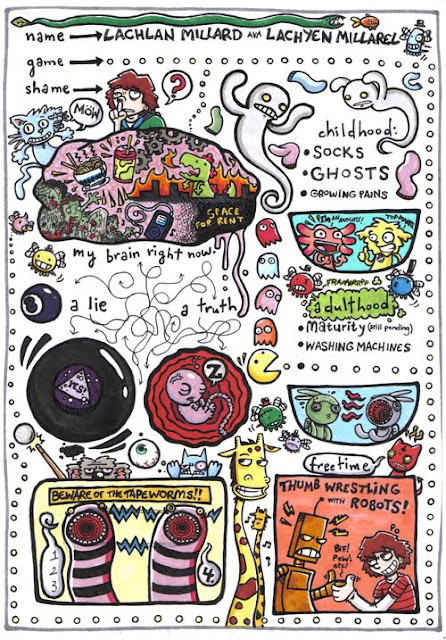 name → LACHLAN MILLARD AKA LACHYEN MILLAREL
game →
shame →
MÖW
?
SPACE FOR RENT
my brain right now.
childhood:
• SOCKS
• GHOSTS
• GROWING PAINS
I'M AN AXOLOTL!
a lie
a truth
adulthood:
• MATURITY (still pending)
• WASHING MACHINES
•
8
YES!
Z
freetime
BEWARE OF THE TAPEWORMS!!
1
2
3
4.
THUMB WRESTLING
WITH ROBOTS!
BIF!
POW!